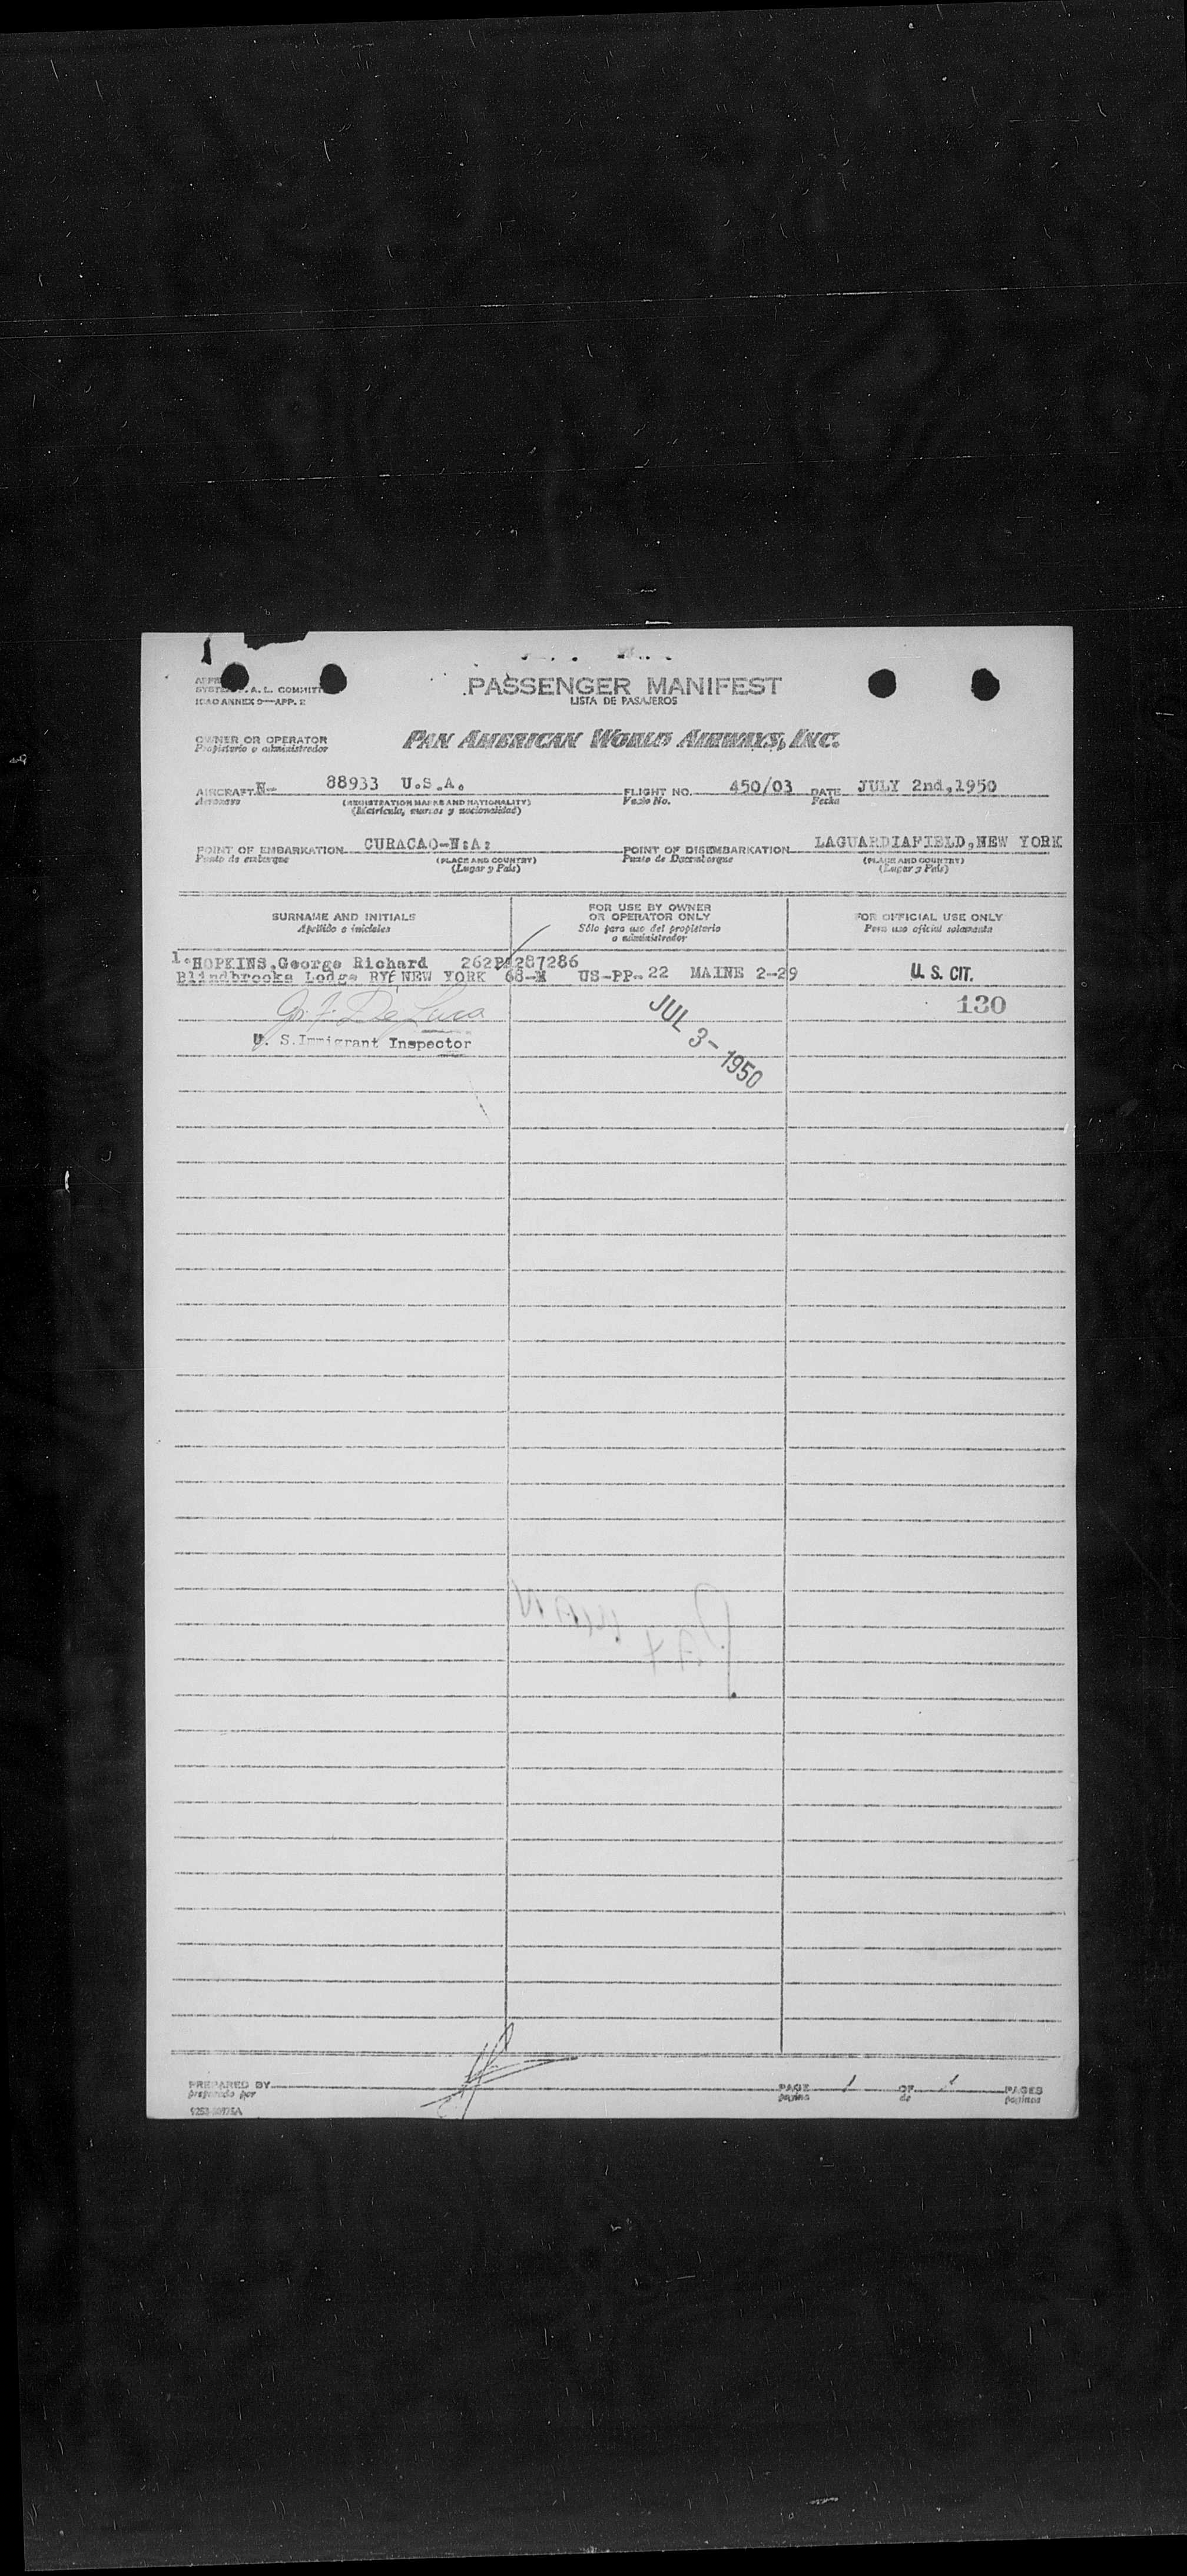 PASSENGER MANIFEST
LISTA DE PASAJEROS
A. L. COMMITT
ICAO ANNEX 9—APP. 2
OWNER OR OPERATOR
Propietario o administrador
PAN AMERICAN WORLD AIRWAYS, INC.
AIRCRAFT N- 88933 U.S.A. FLIGHT NO. 450/03 DATE JULY 2nd,1950
Aeronave (REGISTRATION MARKS AND NATIONALITY) Vuelo No. Fecha
(Matrícula, marcas y nacionalidad)
POINT OF EMBARKATION CURACAO-N:A: POINT OF DISEMBARKATION LAGUARDIAFIELD,NEW YORK
Punto de embarque (PLACE AND COUNTRY) Punto de Desembarque (PLACE AND COUNTRY)
(Lugar y País) (Lugar y País)
SURNAME AND INITIALS FOR USE BY OWNER OR OPERATOR ONLY FOR OFFICIAL USE ONLY
Apellido e iniciales Sólo para uso del propietario o administrador Para uso oficial solamente
1. HOPKINS,George Richard 287286
Blindbrooks Lodge RYE NEW YORK 68-M US-PP- 22 MAINE 2-29 U. S. CIT.
130
JUL 3- 1950
U. S.Immigrant Inspector
PREPARED BY PAGE 1 OF 1 PAGES
preparado por página de páginas